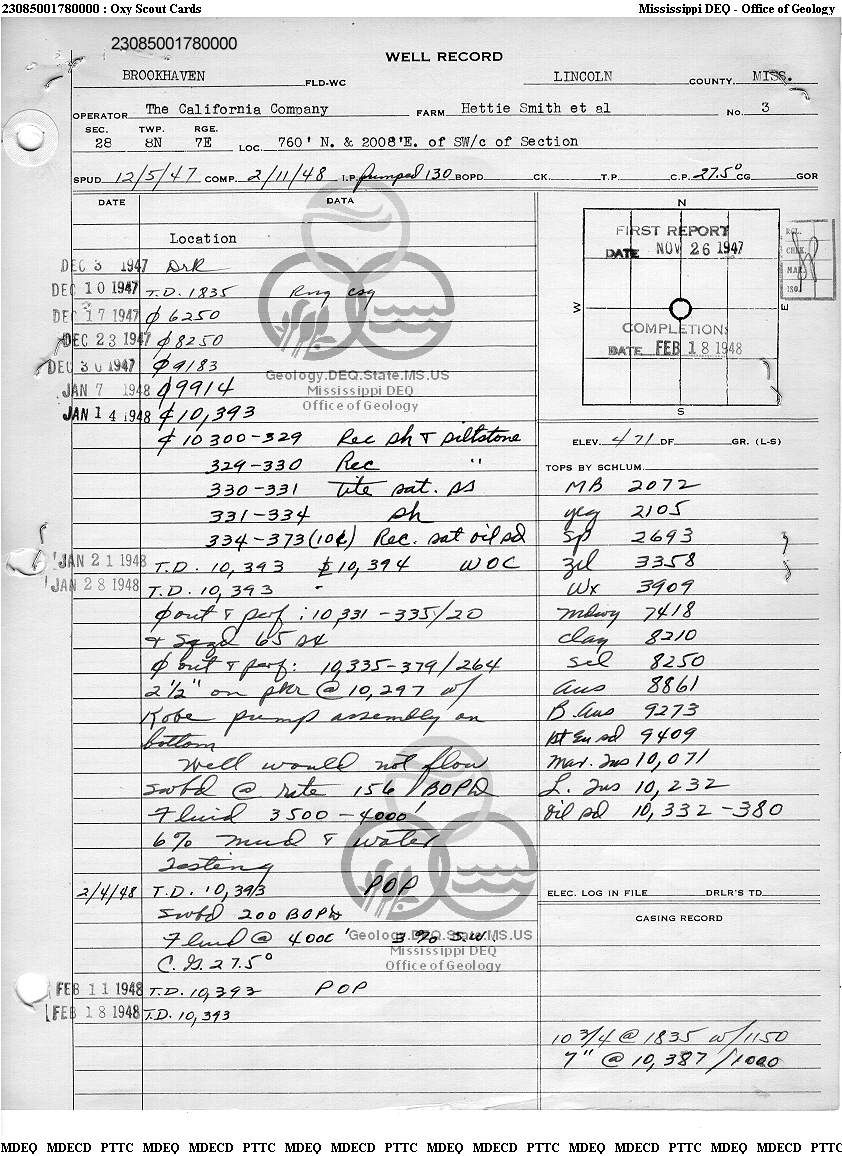 23085001780000 : Oxy Scout Cards
Mississippi DEQ - Office of Geology
23085001780000
WELL RECORD
BROOKHAVEN FLD-WC LINCOLN COUNTY, MISS.
OPERATOR The California Company FARM Hettie Smith et al No. 3
SEC. TWP. RGE.
28 8N 7E LOC. 760' N. & 2008'E. of SW/c of Section
SPUD 12/5/47 COMP. 2/11/48 I.P. pumped 130 BOPD CK. T.P. C.P. 27.5° CG GOR
DATE DATA
Location
DEC 3 1947 Drl
DEC 10 1947 T.D. 1835 Rng csg
DEC 17 1947 ¢ 6250
DEC 23 1947 ¢ 8250
DEC 30 1947 ¢ 9183
JAN 7 1948 ¢ 9914
JAN 14 1948 ¢ 10,393
¢ 10300-329 Rec sh & siltstone
329-330 Rec "
330-331 tite sat. ss
331-334 sh
334-373 (10¢) Rec. sat oil sd
JAN 21 1948 T.D. 10,393 10,394 WOC
JAN 28 1948 T.D. 10,393 -
¢ out & perf: 10,331-335/20
& Sqzd 65 sx
¢ out & perf: 10,335-379/264
2 1/2" on pkr @ 10,297 w/
Kobe pump assembly on
bottom
Well would not flow
Swbd @ rate 156 BOPD
Fluid 3500-4000'
6% mud & water
Testing
2/4/48 T.D. 10,393 POP
Swbd 200 BOPD
Fluid @ 4000' 3% S.W
C.G. 27.5°
FEB 11 1948 T.D. 10,393 POP
FEB 18 1948 T.D. 10,393
N
FIRST REPORT
DATE NOV 26 1947
W E
COMPLETION
DATE FEB 18 1948
S
REC.
CHK.
MAP
ISO.
ELEV. 471 DF GR. (L-S)
TOPS BY SCHLUM.
MB 2072
yeg 2105
Sp 2693
zil 3358
Wx 3909
mdwy 7418
clay 8210
sel 8250
Aus 8861
B. Aus 9273
1st Eu sd 9409
Mar. Tus 10,071
L. Tus 10,232
Oil sd 10,332-380
ELEC. LOG IN FILE DRLR'S TD
CASING RECORD
10 3/4 @ 1835 w/1150
7" @ 10,387/1000
Geology.DEQ.State.MS.US
Mississippi DEQ
Office of Geology
Geology.DEQ.State.MS.US
Mississippi DEQ
Office of Geology
MDEQ MDECD PTTC MDEQ MDECD PTTC MDEQ MDECD PTTC MDEQ MDECD PTTC MDEQ MDECD PTTC MDEQ MDECD PTTC